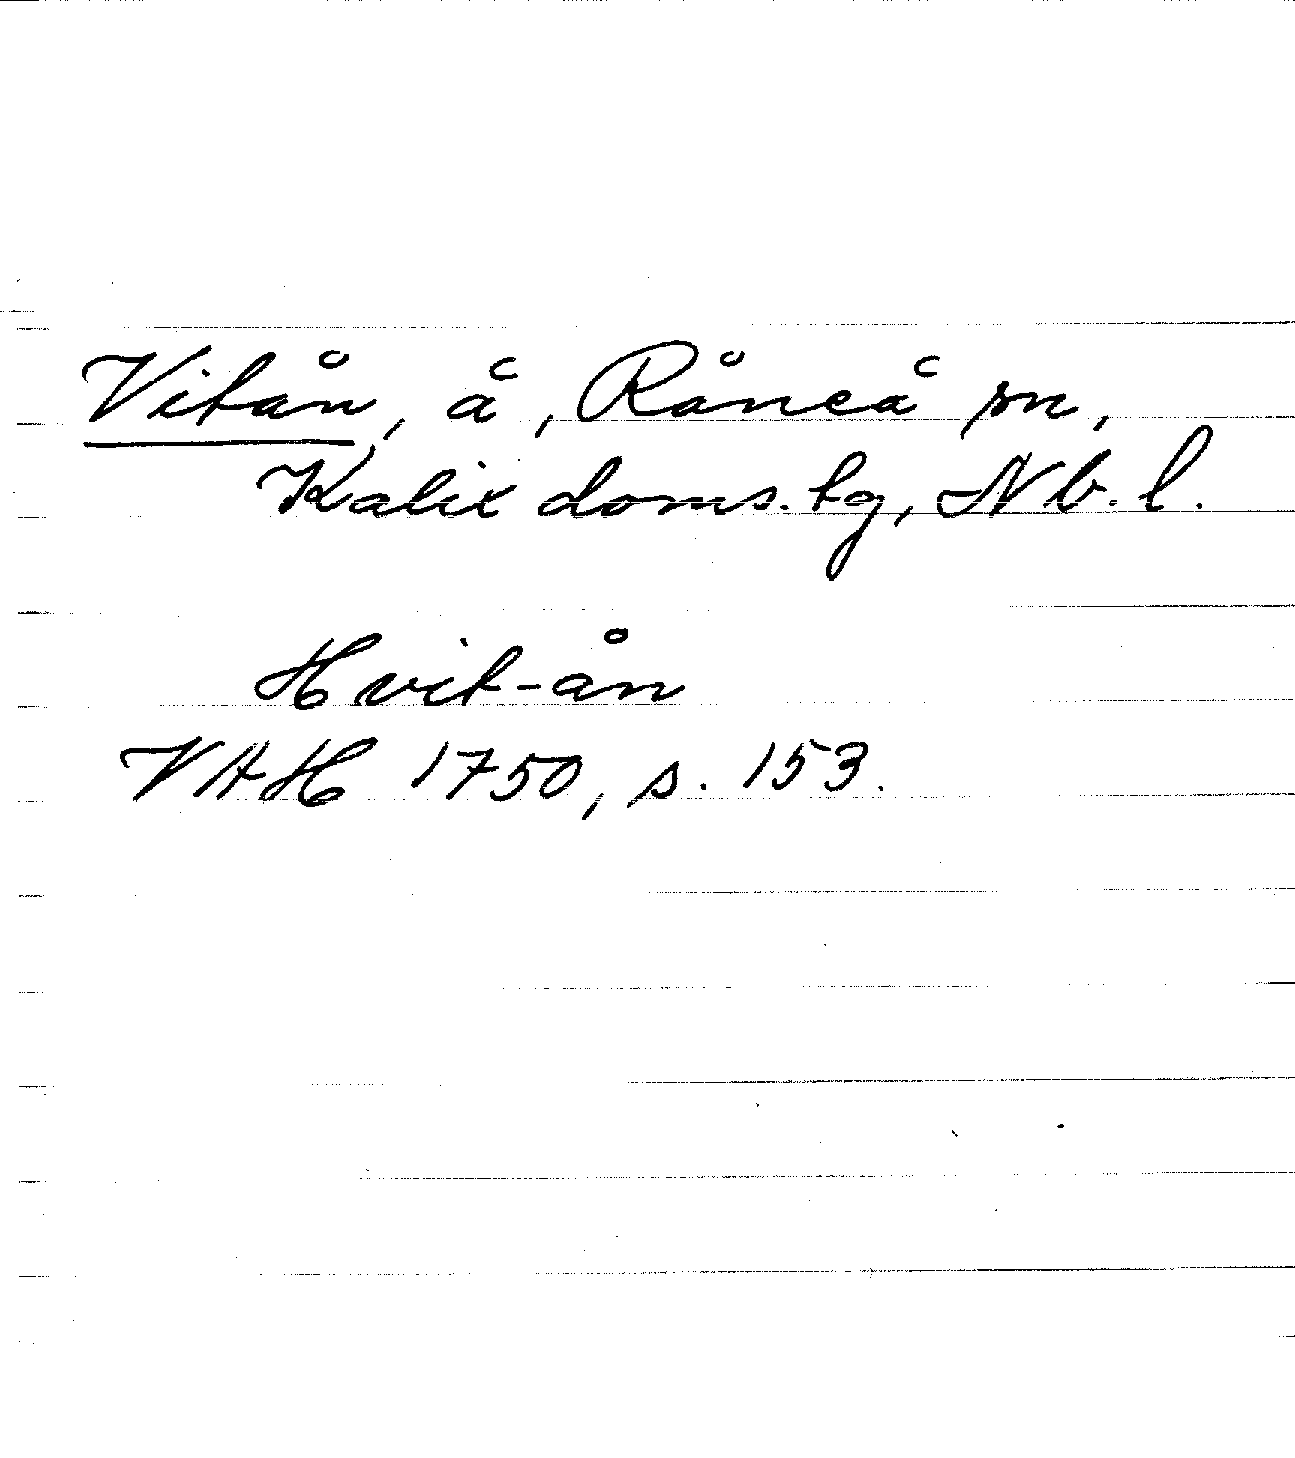 Vitån, å, Råneå sn,
Kalix doms.tg, Nb.l.
Hvit-ån
VAH 1750, s. 153.